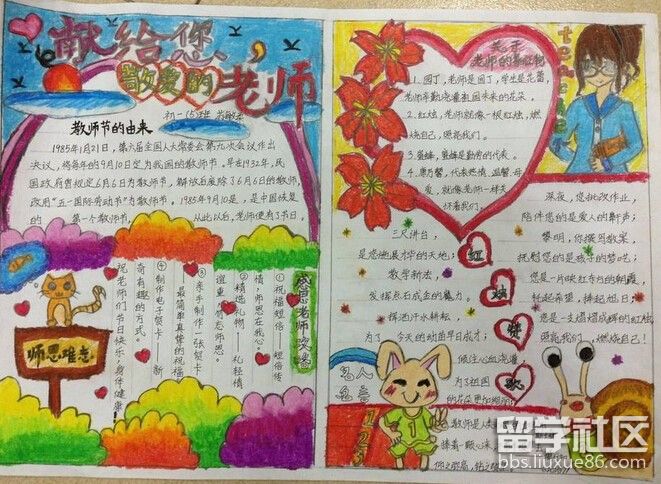 献给您,
敬爱的老师
教师节的由来
1985年1月21日,第六届全国人大常委会第九次会议作出
决议,将每年的9月10日定为我国的教师节。早在1932年,民
国政府曾规定6月6日为教师节,解放后废除了6月6日的教师节,
改用“五一国际劳动节”为教师节。1985年9月10日,是中国恢复
的第一个教师节,从此以后,老师便有了节日。
感恩老师文案
①祝福短信——短信传
情,师恩在我心。
②精选礼物——礼轻情
谊重
③亲手制作一张贺卡——
最简单真情的祝福
④制作电子贺卡——新
奇有趣的方式。
祝老师们节日快乐,身体健康!
师恩难忘
关于
老师的
1、园丁,老师是园丁,学生是花蕾,
老师辛勤浇灌祖国未来的花朵。
2、红烛,老师就像一根红烛,燃
烧自己,照亮我们。
3、蜜蜂,蜜蜂是勤劳的代表。
4、康乃馨,代表热情、温馨、母
爱,就像老师一样关
怀着我们。
teacher
红烛颂歌
三尺讲台,
是您施展才华的天地;
教学新法,
发挥点石成金的魔力。
挥洒汗水耕耘,
为了今天的幼苗早日成才;
倾注心血浇灌
为了祖国
的花朵更加绚丽
深夜,您批改作业,
陪伴您的是爱人的鼾声;
黎明,你撰写教案,
抚慰您的是孩子的梦呓;
您是一片映红东方的朝霞,
托起希望,捧起旭日;
您是一支熠熠成辉的红烛,
照亮我们,燃烧自己!
名人
名言
123
留学社区
bbs.liuxue86.com